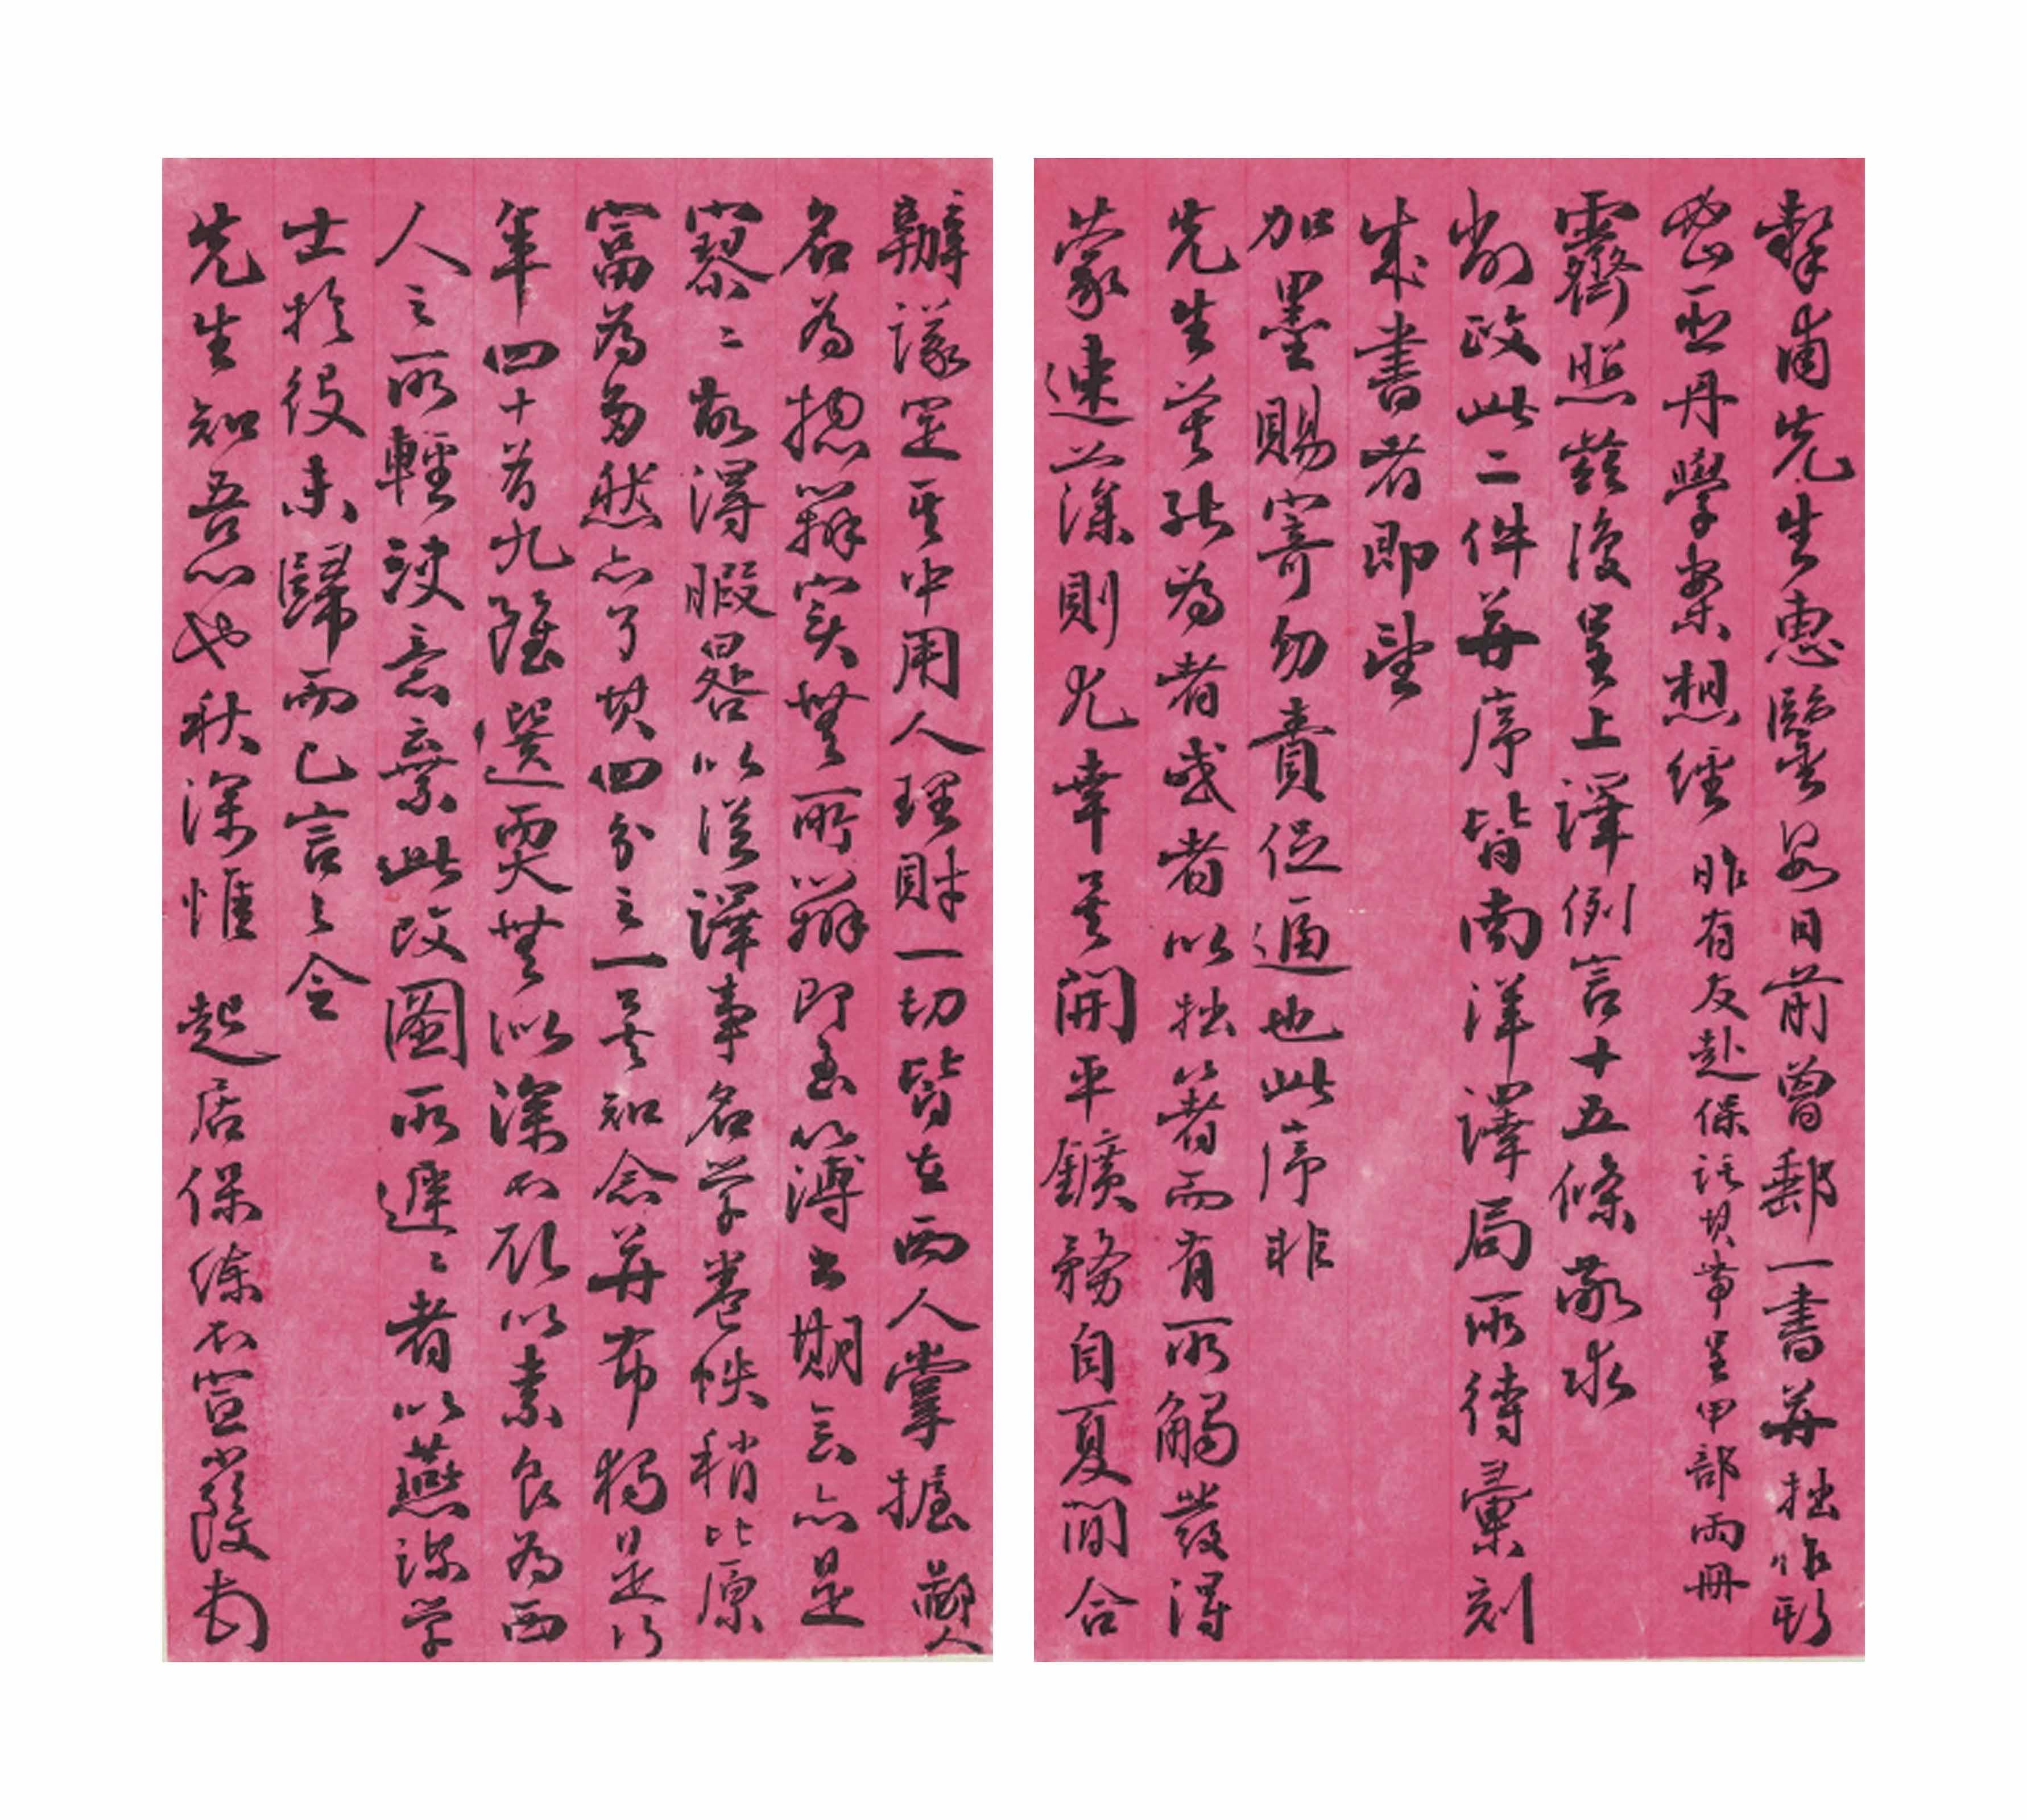 摯甫先生惠鑒數日前曾郵一書并拙作斯
密亞丹學案想經 昨有友赴保託其帶呈甲部兩冊
霽照茲復呈上譯例言十五條敬求
削政此二件并序皆南洋譯局所待彙刻
成書者即望
加墨賜寄勿責促逼也此序非
先生莫能為者或者以拙著而有所觸發得
蒙速藻則尤幸矣開平鑛務自夏間合
辦議定其中用人理財一切皆在西人掌握鄙人
名為總辦實無所辦即至簿書期會亦是
寥〻故得暇晷以從譯事名學卷帙稍比原
富為多然亦了其四分之一矣知念并布獨是行
年四十有九雖選耎無似深不欲以素食為西
人之所輕決意棄此改圖所遲〻者以燕謀學
士於役未歸而已言之令
先生知吾心也秋深惟 起居保練不宣嚴復